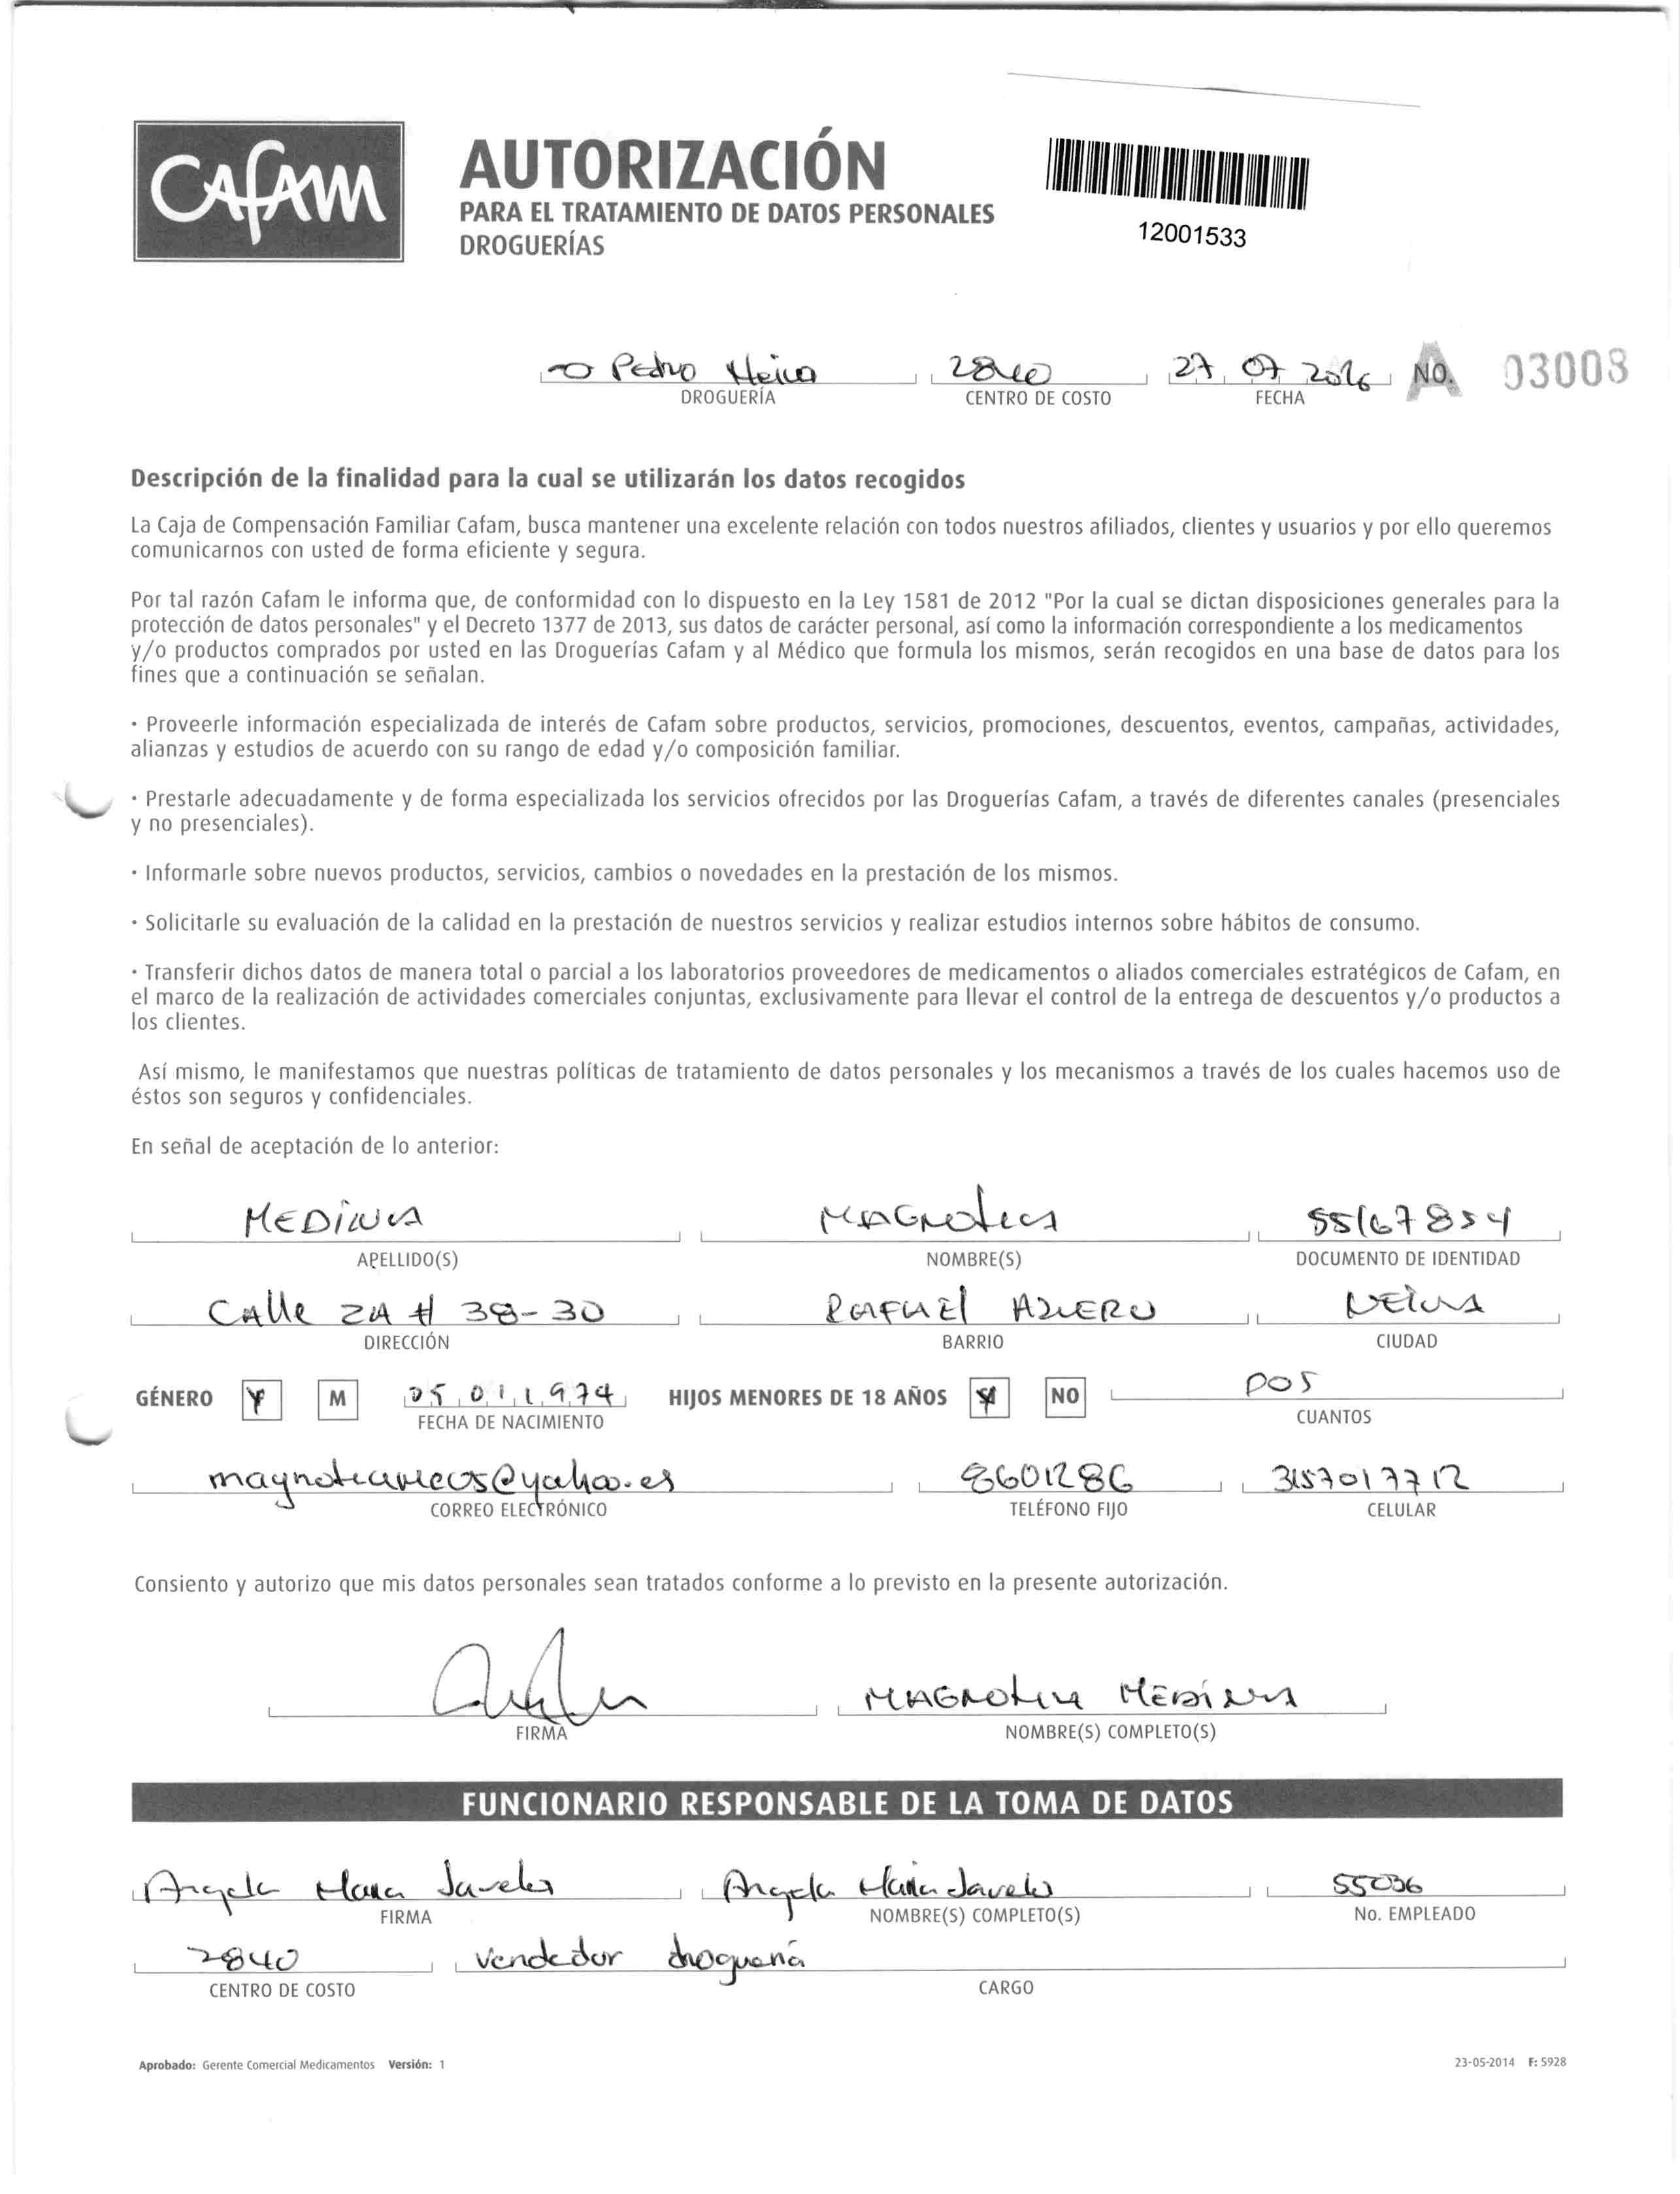 CAFAM
AUTORIZACIÓN
PARA EL TRATAMIENTO DE DATOS PERSONALES
DROGUERÍAS
12001533
Pedro Neiva 2840 27 07 2016 A NO. 03008
DROGUERÍA CENTRO DE COSTO FECHA
Descripción de la finalidad para la cual se utilizarán los datos recogidos
La Caja de Compensación Familiar Cafam, busca mantener una excelente relación con todos nuestros afiliados, clientes y usuarios y por ello queremos
comunicarnos con usted de forma eficiente y segura.
Por tal razón Cafam le informa que, de conformidad con lo dispuesto en la Ley 1581 de 2012 "Por la cual se dictan disposiciones generales para la
protección de datos personales" y el Decreto 1377 de 2013, sus datos de carácter personal, así como la información correspondiente a los medicamentos
y/o productos comprados por usted en las Droguerías Cafam y al Médico que formula los mismos, serán recogidos en una base de datos para los
fines que a continuación se señalan.
· Proveerle información especializada de interés de Cafam sobre productos, servicios, promociones, descuentos, eventos, campañas, actividades,
alianzas y estudios de acuerdo con su rango de edad y/o composición familiar.
· Prestarle adecuadamente y de forma especializada los servicios ofrecidos por las Droguerías Cafam, a través de diferentes canales (presenciales
y no presenciales).
· Informarle sobre nuevos productos, servicios, cambios o novedades en la prestación de los mismos.
· Solicitarle su evaluación de la calidad en la prestación de nuestros servicios y realizar estudios internos sobre hábitos de consumo.
· Transferir dichos datos de manera total o parcial a los laboratorios proveedores de medicamentos o aliados comerciales estratégicos de Cafam, en
el marco de la realización de actividades comerciales conjuntas, exclusivamente para llevar el control de la entrega de descuentos y/o productos a
los clientes.
Así mismo, le manifestamos que nuestras políticas de tratamiento de datos personales y los mecanismos a través de los cuales hacemos uso de
éstos son seguros y confidenciales.
En señal de aceptación de lo anterior:
MEDINA MAGNOLIA 55167854
APELLIDO(S) NOMBRE(S) DOCUMENTO DE IDENTIDAD
Calle 2A # 38-30 RAFAEL AZUERO NEIVA
DIRECCIÓN BARRIO CIUDAD
GÉNERO M 25 01 1974 HIJOS MENORES DE 18 AÑOS NO DOS
FECHA DE NACIMIENTO CUANTOS
8601286 3157017712
CORREO ELECTRÓNICO TELÉFONO FIJO CELULAR
Consiento y autorizo que mis datos personales sean tratados conforme a lo previsto en la presente autorización.
MAGNOLIA MEDINA
FIRMA NOMBRE(S) COMPLETO(S)
FUNCIONARIO RESPONSABLE DE LA TOMA DE DATOS
Angela Maria Angela Maria 55036
FIRMA NOMBRE(S) COMPLETO(S) No. EMPLEADO
2840 vendedor droguería
CENTRO DE COSTO CARGO
Aprobado: Gerente Comercial Medicamentos Versión: 1 23-05-2014 F: 5928